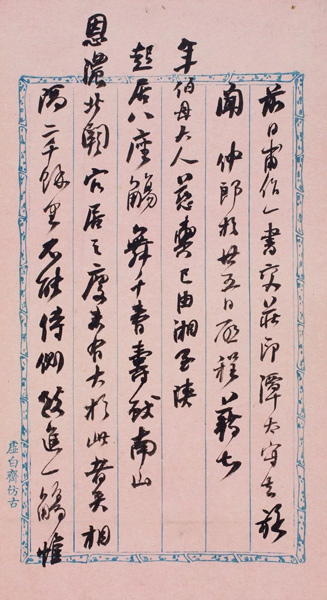 前日甫作一書交莊印潭太守去旋
聞仲郎於廿五日啟程藉知
年伯母大人慈輿已由湘至陝
起居八座觴舞千春壽獻南山
恩濃北闕官居之慶未有大於此者矣相
隔二千餘里不能侍側敬進一觴惟
虛白齋仿古